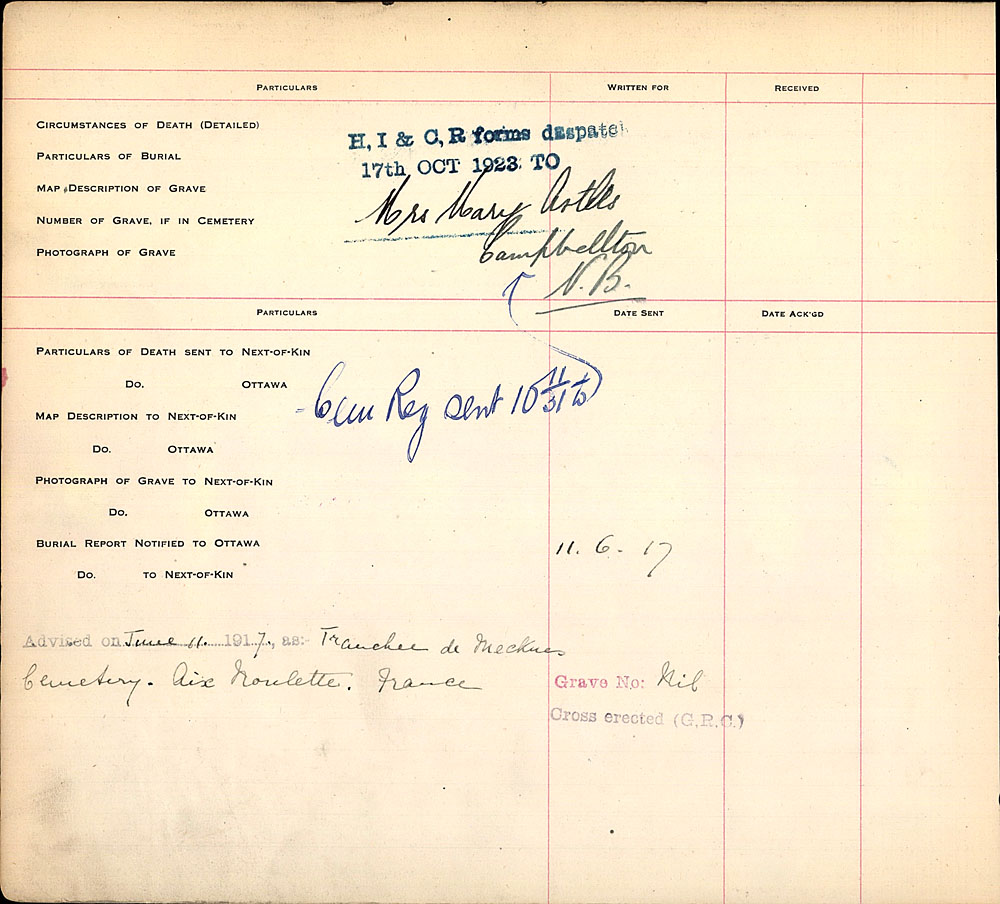 PARTICULARS WRITTEN FOR RECEIVED
CIRCUMSTANCES OF DEATH (DETAILED)
H, I & C, R forms despatch
PARTICULARS OF BURIAL
17th OCT 1923 TO
MAP DESCRIPTION OF GRAVE
Mrs Mary Astles
NUMBER OF GRAVE, IF IN CEMETERY
Campbellton
PHOTOGRAPH OF GRAVE
N.B.
PARTICULARS DATE SENT DATE ACK'GD
PARTICULARS OF DEATH SENT TO NEXT-OF-KIN
DO. OTTAWA
Cem Reg sent 10
MAP DESCRIPTION TO NEXT-OF-KIN
DO. OTTAWA
PHOTOGRAPH OF GRAVE TO NEXT-OF-KIN
DO. OTTAWA
BURIAL REPORT NOTIFIED TO OTTAWA 11. 6. 17
DO. TO NEXT-OF-KIN
Advised on June 11. 1917., as:- Tranchee de Mecknes
Cemetery. Aix Noulette. France
Grave No: Nil
Cross erected (G.R.C.)